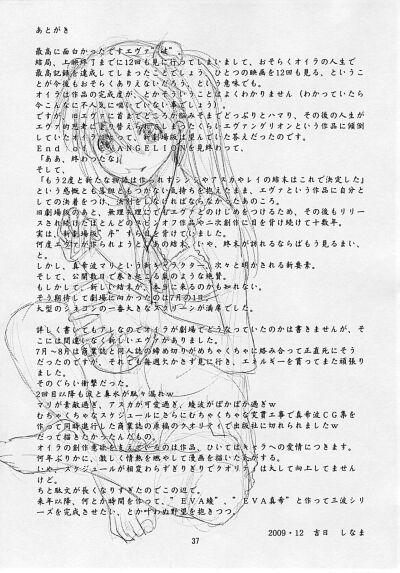 あとがき
最高に面白かったですエヴァ"破"
結局、上映終了までに12回も見に行ってしまいまして、おそらくオイラの人生で
最高記録を達成してしまったことでしょう。ひとつの映画を12回も見る、というこ
とが今後もおそらくありえないだろう、という意味でも。
オイラは作品の完成度が、とかそういうことはよくわかりません（わかっていたら
今こんなに不人気に喘いでいない事でしょう）
ですが、旧エヴァに首までどころか脳みそまでどっぷりとハマり、その後の人生が
エヴァ的思考にすり替えられてしまったくらいエヴァンゲリオンという作品に傾倒
していたオイラにとって、新劇場版は望んでいた答えだったのです。
End of EVANGELIONを見終わって、
「ああ、終わったな」
そして、
「もう2度と新たな物語は作られずシンジやアスカやレイの結末はこれで決定した」
という感慨とも落胆ともつかない気持ちを抱えたまま、エヴァという作品に自分と
しての決着をつけ、決別をしなければならなかったあのころ。
旧劇場版のあと、無理矢理にでもエヴァとのけじめをつけるため、その後もリリー
スされ続けたほとんどのスピンオフ作品や二次創作に目を背け続けて十数年。
実は、新劇場版"序"すらも目を背けていました。
何度エヴァが作られようと、あの結末、いや、終末が訪れるならばもう見るまい、
と。
しかし、真希波マリという新キャラクター、次々と明かされる新要素。
そして、公開数日で巻き起こる嵐のような絶賛。
もしかして、新しい結末が、本当に来るのかも知れない。
そう期待して劇場に向かったのは7月の1日。
大型のシネコンの一番大きなスクリーンが満席でした。
詳しく書いてもアレなのでオイラが劇場でどうなっていたのかは書きませんが、そ
こには間違いなく新しいエヴァがありました。
7月～8月は商業誌と同人誌の締め切りがめちゃくちゃに絡み合って正直死にそう
だったのですが、それでも毎週欠かさず見に行き、エネルギーを貰ってまた頑張り
ました。
そのぐらい衝撃だった。
2回目以降も涙と鼻水が駄々漏れw
マリが素敵過ぎ、アスカが可愛過ぎ、綾波がぽかぽか過ぎw
むちゃくちゃなスケジュールにさらにむちゃくちゃな突貫工事で真希波CG集を
作って同時進行した商業誌の原稿のクオリティで出版社に切られれましたw
だって描きたかったんだもの。
オイラの創作意欲を支えているのは作品、ひいてはキャラへの愛情につきます。
何年ぶりかに、激しく情熱を燃やして漫画を描いた気がする。
いや、スケジュールが相変わらずぎりぎりでクオリティは大して向上してません
けど。
ちと駄文が長くなりすぎたのでこの辺で。
来年以降、何とか時間を作って、"EVA綾"、"EVA真希"と作って三波シリ
ーズを完成させたい、とか叶わぬ野望を抱きつつ。
2009・12 吉日 しなま
37